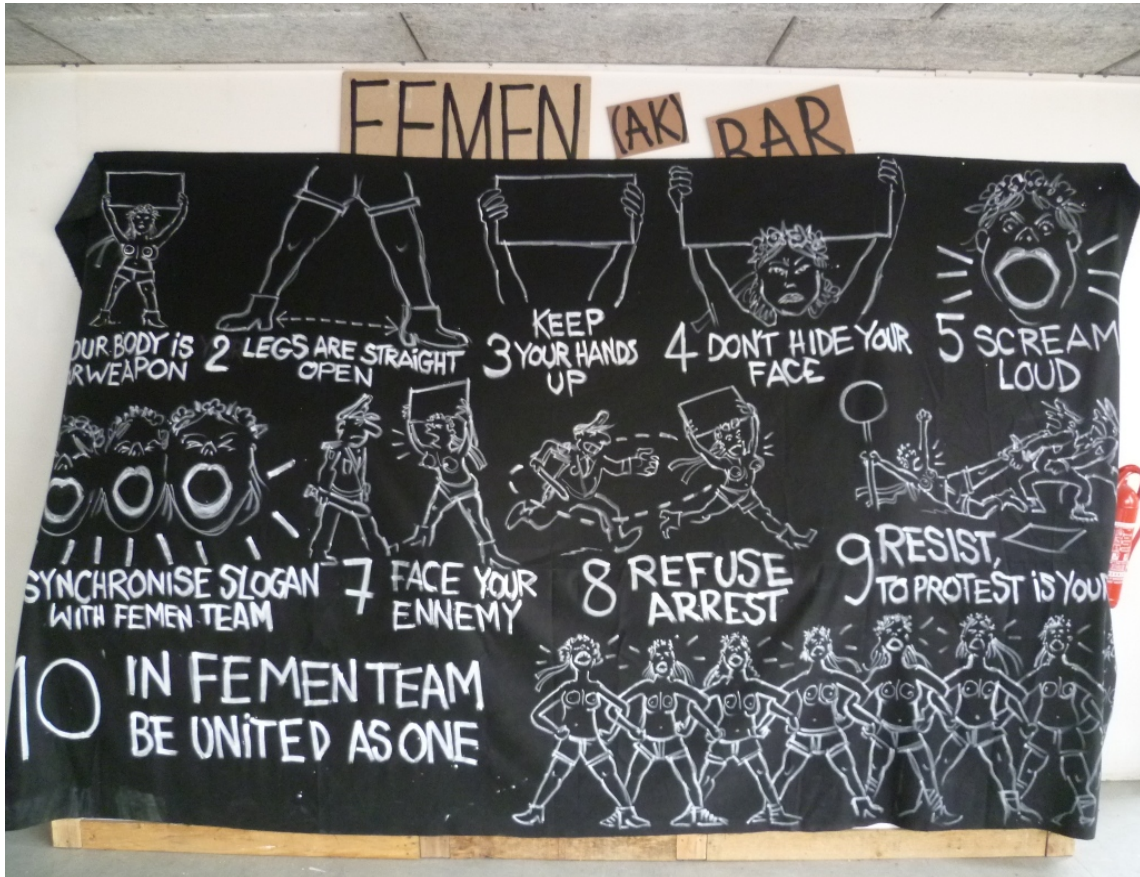 FEMEN (AK) BAR
OUR BODY IS
R WEAPON
2 LEGS ARE STRAIGHT
OPEN
3 KEEP
YOUR HANDS
UP
4 DON'T HIDE YOUR
FACE
5 SCREAM
LOUD
SYNCHRONISE SLOGAN
WITH FEMEN TEAM
7 FACE YOUR
ENNEMY
8 REFUSE
ARREST
9 RESIST,
TO PROTEST IS YOUR
10 IN FEMEN TEAM
BE UNITED AS ONE